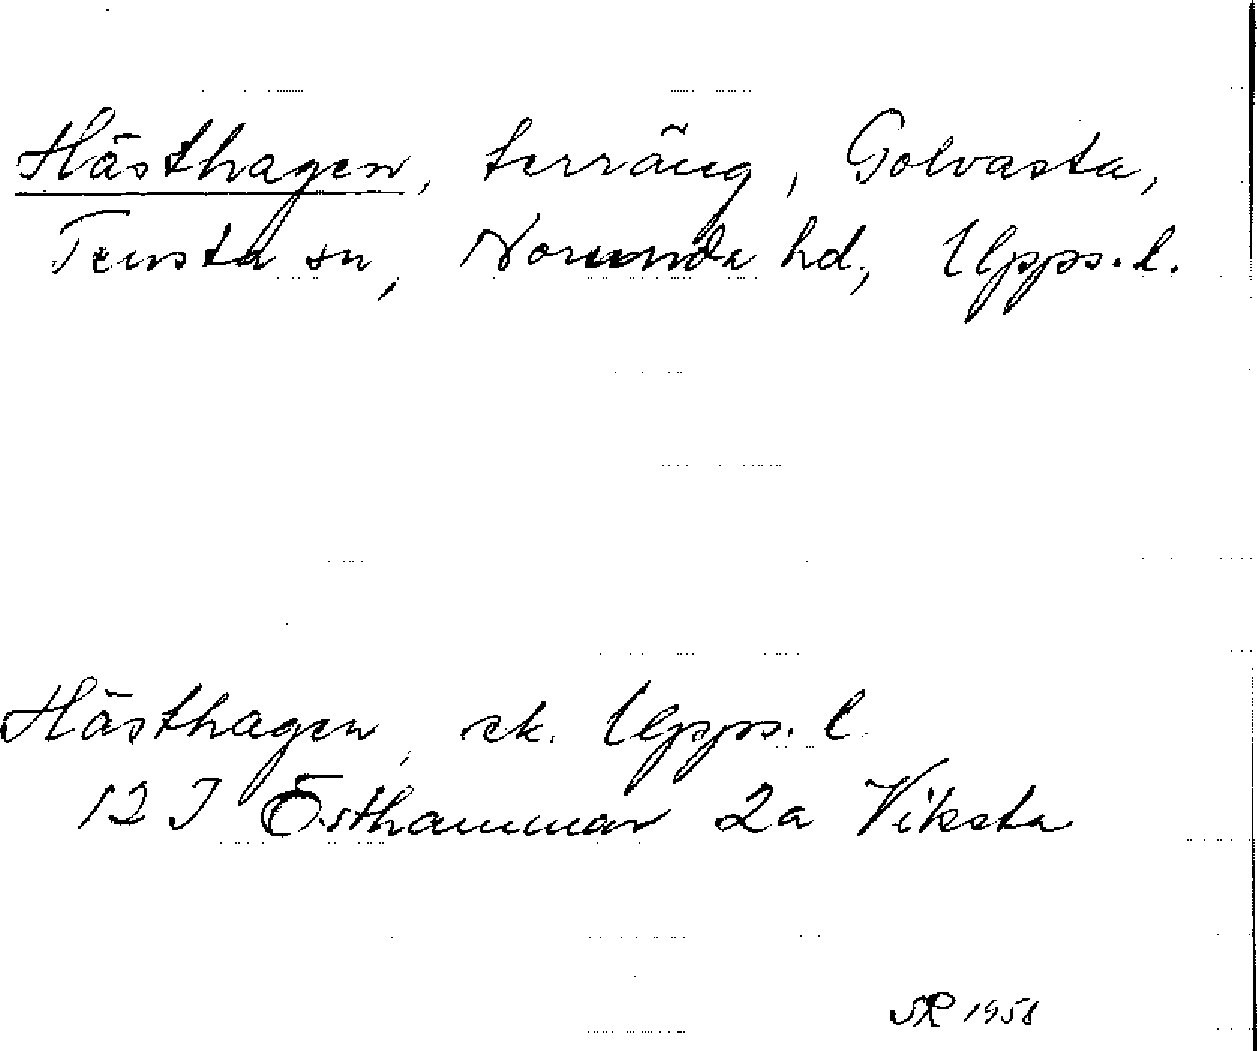 Hästhagen, terräng, Golvasta,
Tensta sn, Norunda hd, Upps. l.
Hästhagen, ek. Upps. l
12 I Östhammar 2a Viksta
SR 1958